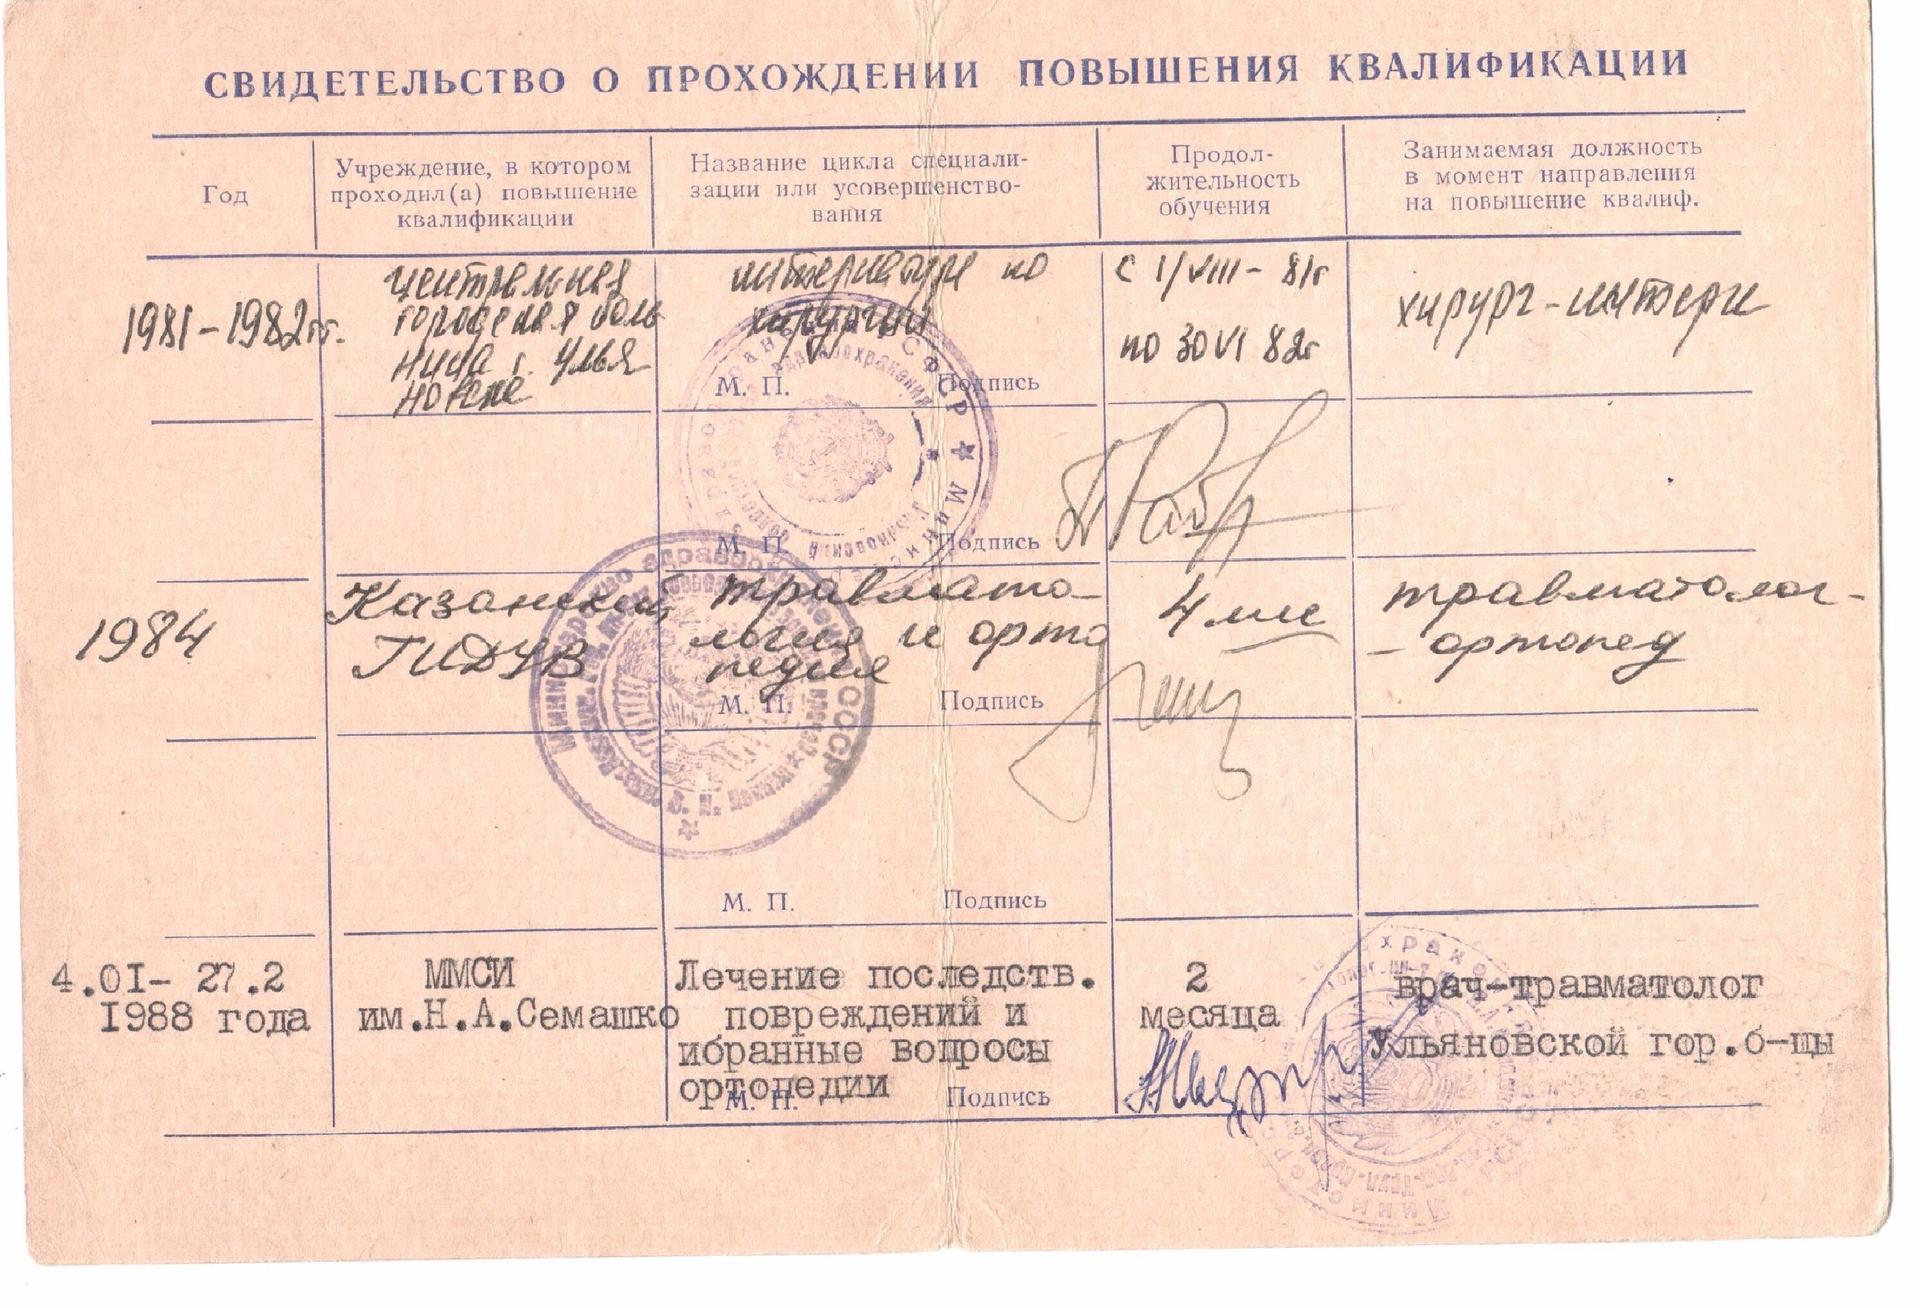 СВИДЕТЕЛЬСТВО О ПРОХОЖДЕНИИ ПОВЫШЕНИЯ КВАЛИФИКАЦИИ
Год
Учреждение, в котором
проходил(а) повышение
квалификации
Название цикла специали-
зации или усовершенство-
вания
Продол-
жительность
обучения
Занимаемая должность
в момент направления
на повышение квалиф.
1981-1982гг.
центральная
городская боль
ница г. Улья
новска
интернатура по
хирургии
М. П. Подпись
с I/VIII- 81г
по 30 VI 82г
хирург-интерн
М. П. Подпись
1984
Казанский
ГИДУВ
травмато-
логия и орто
педия
М. П. Подпись
4 мес
травматолог-
- ортопед
М. П. Подпись
4.01- 27.2
1988 года
ММСИ
им.Н.А.Семашко
Лечение последств.
повреждений и
ибранные вопросы
ортопедии
М. П. Подпись
2
месяца
врач-травматолог
Ульяновской гор.б-цы